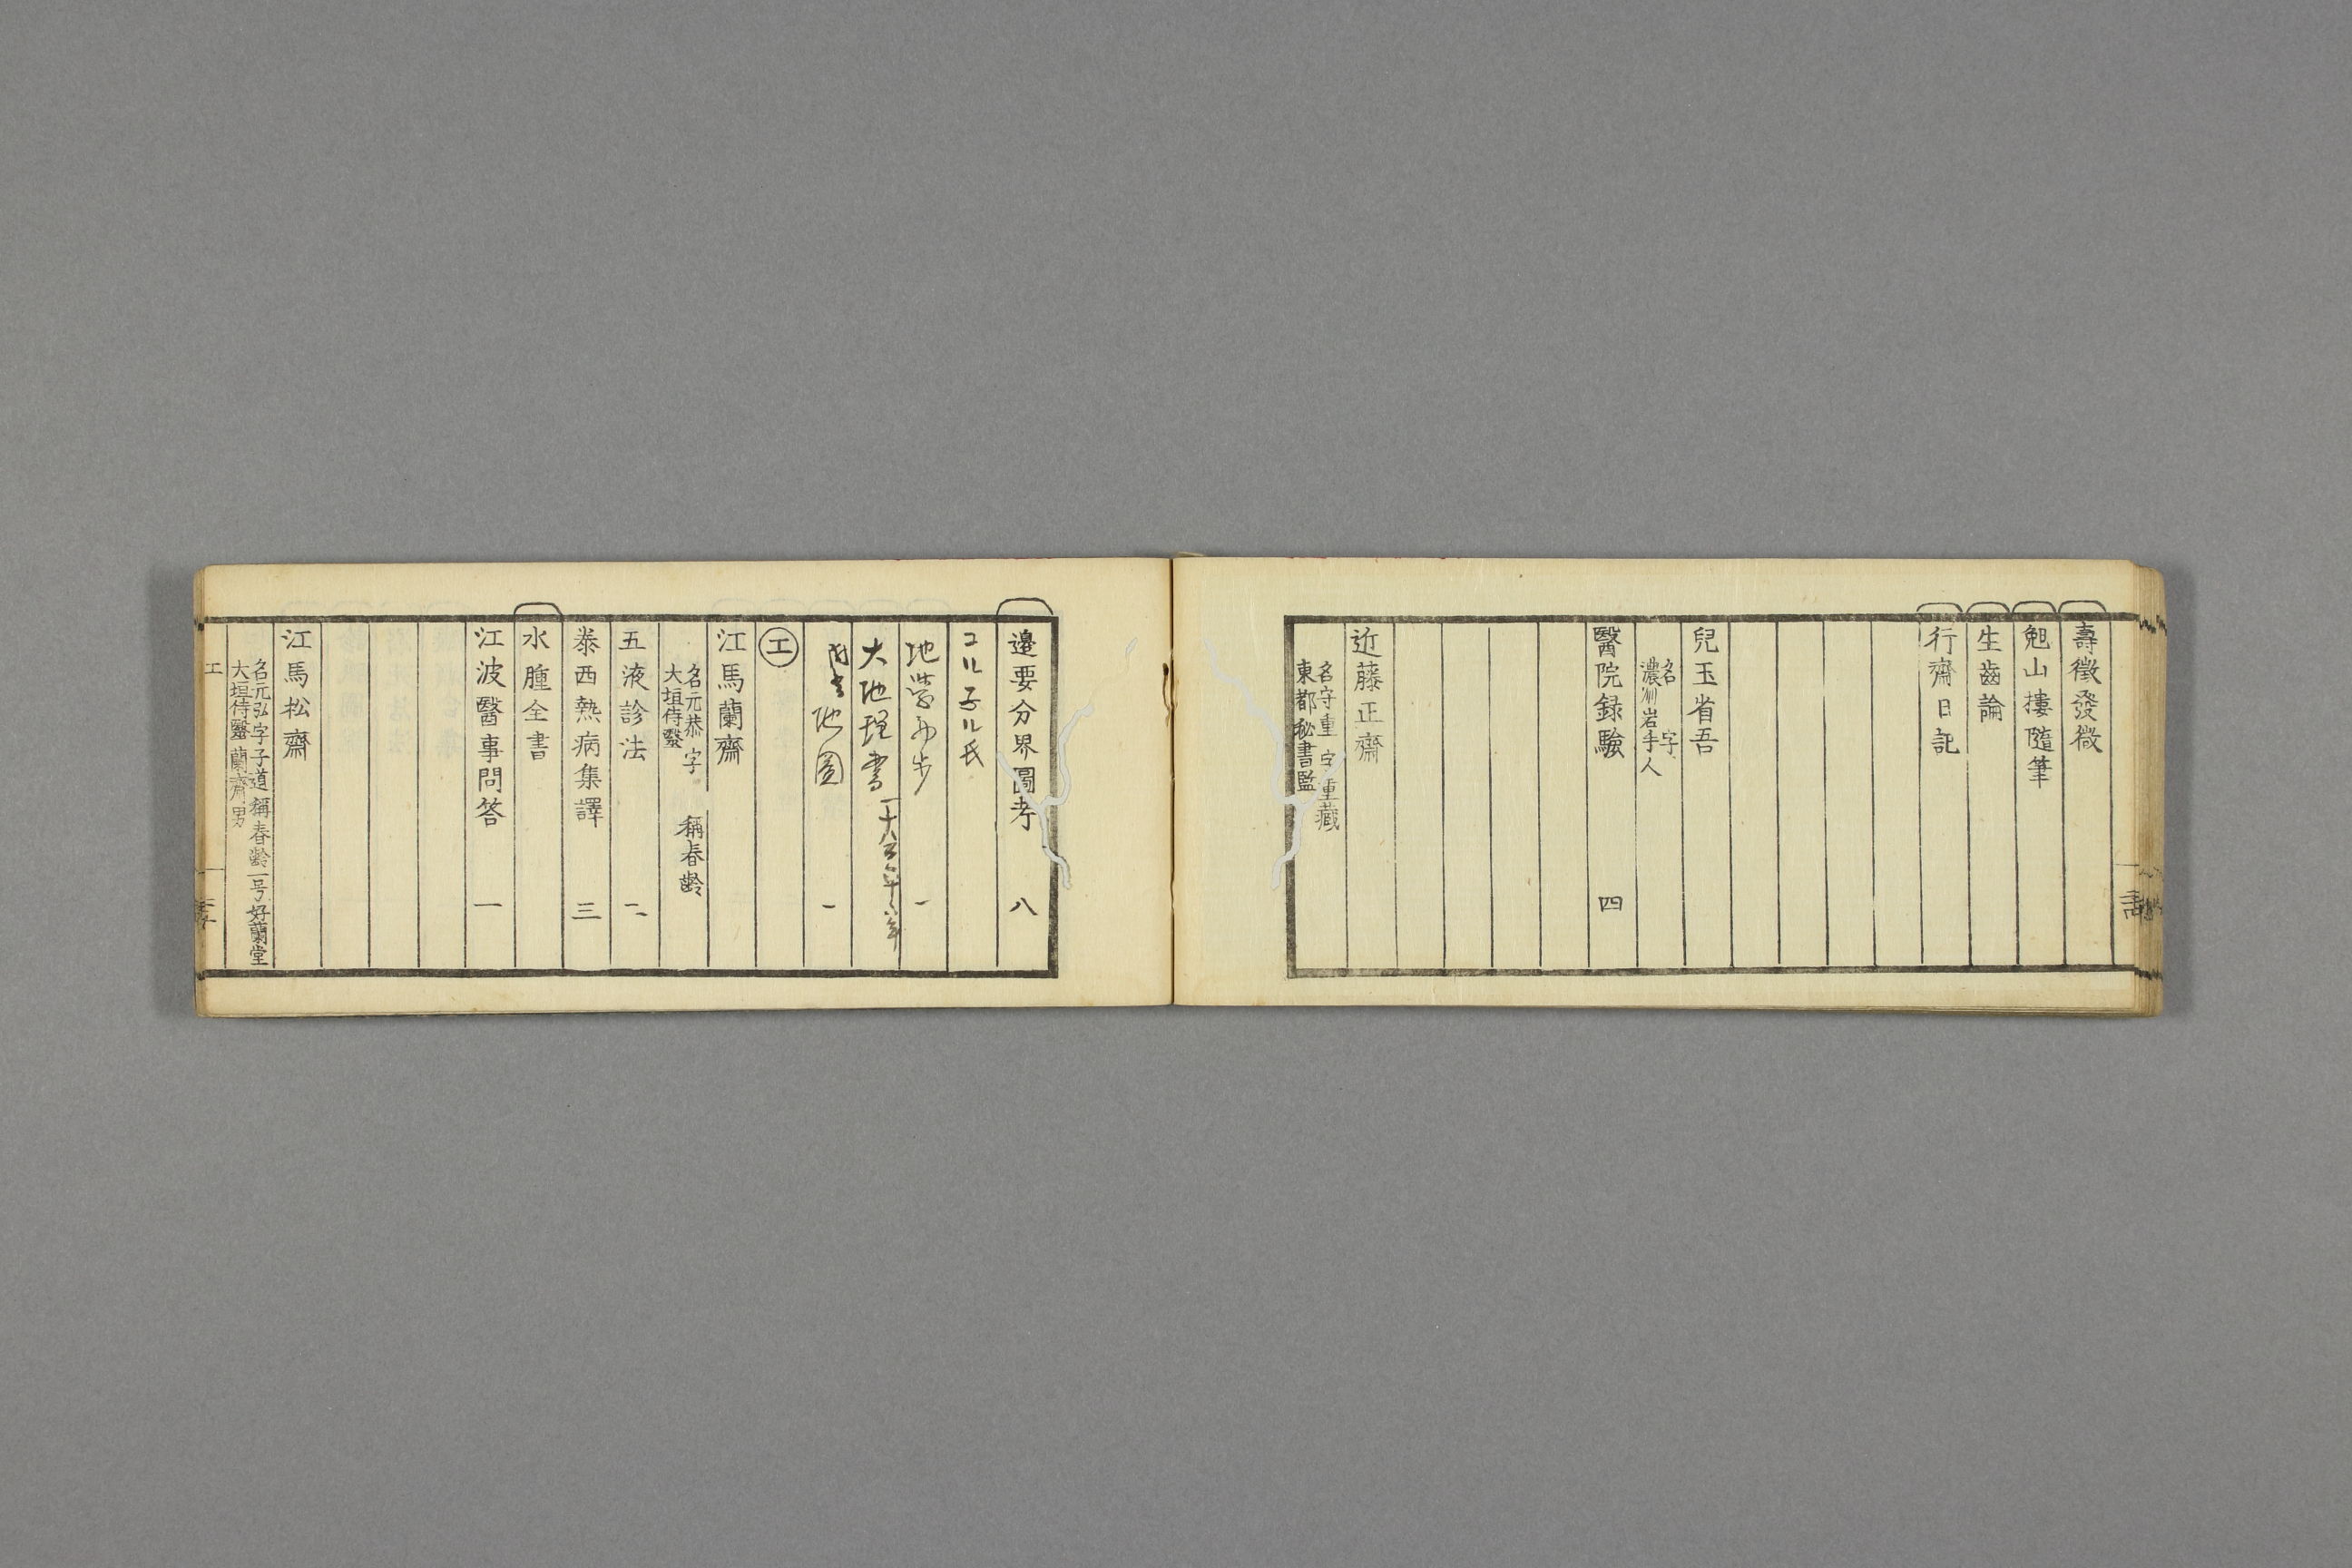 壽徵發微
魁山摟隨筆
生齒論
行齋日記
兒玉省吾
名 字
濃州岩手人
醫院録驗 四
近藤正齋
名守重 字重藏
東都秘書監
邊要分界圖考 八
コル子ル氏
地學初步 一
大地理書
地圖 一
エ
江馬蘭齋
名元恭 字 稱春齡
大垣侍醫
五液診法 二
泰西熱病集譯 三
水腫全書
江波醫事問答 一
江馬松齋
名元弘 字子道 稱春齡 一号好蘭堂
大垣侍醫 蘭齋男
エ